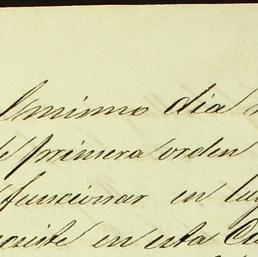 El mismo dia
de primera orden
funcionar en
en esta